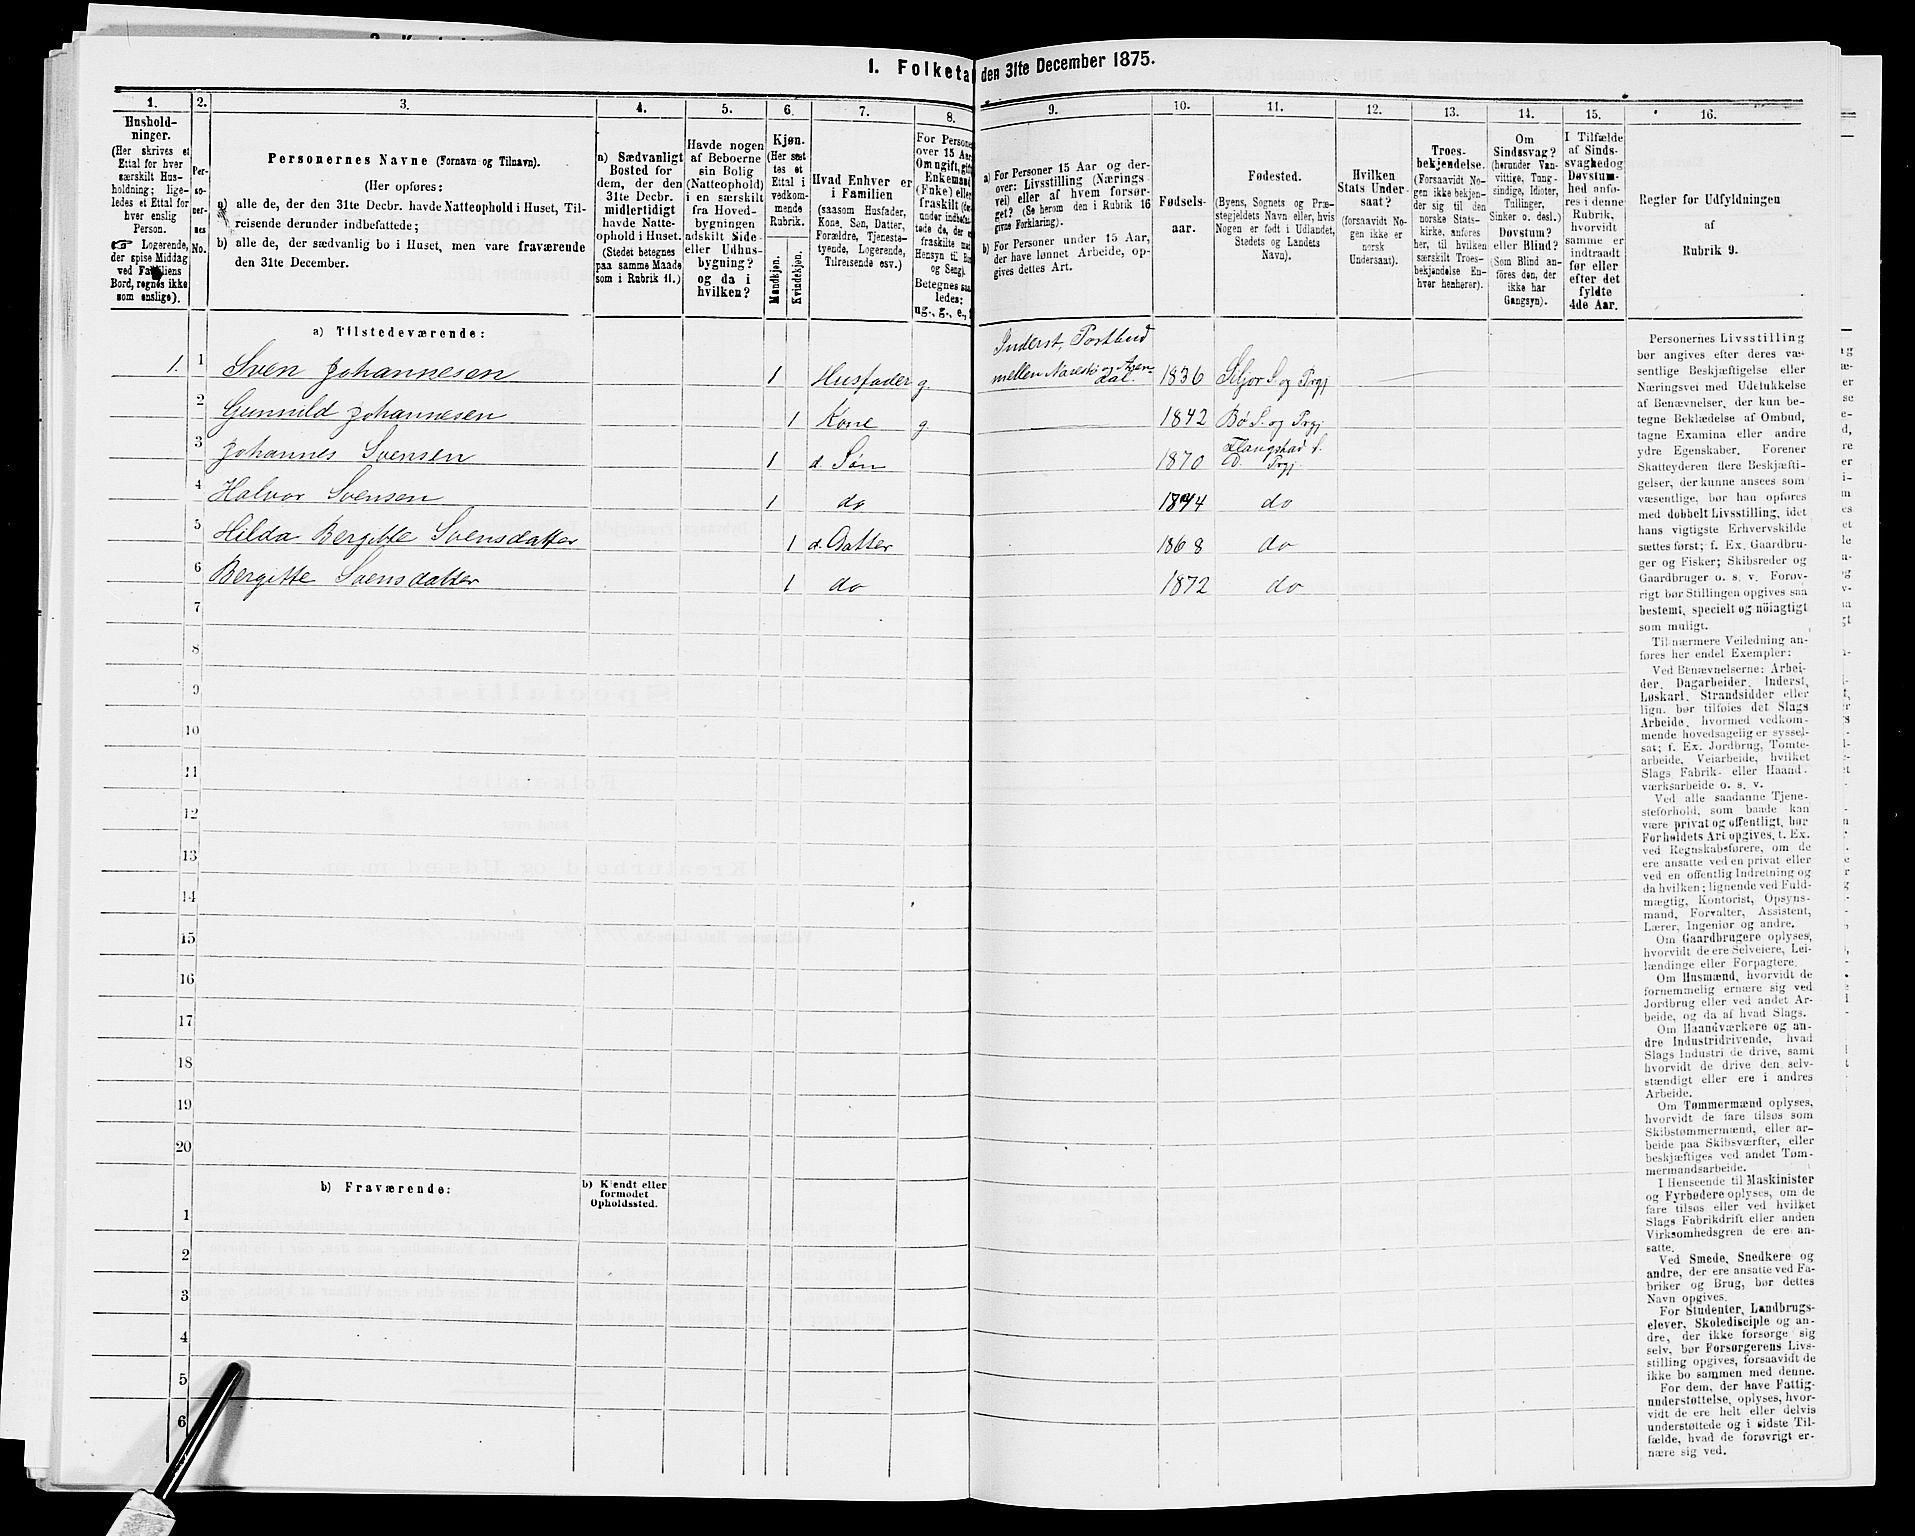 1. Folketa den 31te December 1875.
1.
2.
3.
4.
5.
6.
7.
8.
9.
10.
11.
12.
13.
14.
15.
16.
Hushold-
ninger.
(Her skrives et
Ettal for hver
særskilt Hus-
holdning; lige-
ledes et Ettal for
hver enslig
Person.
☞ Logerende,
der spise Middag
ved Familiens
Bord, regnes ikke
som enslige).
Per-
so-
ner-
nes
No.
Personernes Navne (Fornavn og Tilnavn).
(Her opføres:
a) alle de, der den 31te Decbr. havde Natteophold i Huset, Til-
reisende derunder indbefattede;
b) alle de, der sædvanlig bo i Huset, men vare fraværende
den 31te December.
a) Sædvanligt
Bosted for
dem, der den
31te Decbr.
midlertidigt
havde Natte-
ophold i Huset.
(Stedet betegnes
paa samme Maade
som i Rubrik 11.)
Havde nogen
af Beboerne
sin Bolig
(Natteophold)
i en særskilt
fra Hoved-
bygningen
adskilt Side-
eller Udhus-
bygning?
og da i
hvilken?
Kjøn.
(Her sæt-
tes et
Ettal i
vedkom-
mende
Rubrik.
Mandkjøn.
Kvindekjøn.
Hvad Enhver er
i Familien
(saasom Husfader,
Kone, Søn, Datter,
Forældre, Tjeneste-
tyende, Logerende,
Tilreisende osv.)
For Persone
over 15 Aar
Om ugift, gift,
Enkemand
(Enke) eller
fraskilt (de
under indbefat-
tede de, der er
fraskilte med
Hensyn til Bo
og Seng).
Betegnes saa
ledes:
ug., g., e., f
a) For Personer 15 Aar og der-
over: Livsstilling (Nærings
vei) eller af hvem forsør-
get? (Se herom den i Rubrik 16
givne Forklaring.)
b) For Personer under 15 Aar,
der have lønnet Arbeide, op-
gives dettes Art.
Fødsels-
aar.
Fødested.
(Byens, Sognets og Præ-
stegjeldets Navn eller, hvis
Nogen er født i Udlandet,
Stedets og Landets
Navn).
Hvilken
Stats Under-
saat?
(forsaavidt No-
gen ikke er
norsk
Undersaat).
Troes-
bekjendelse.
(Forsaavidt No-
gen ikke bekjen-
der sig til den
norske Stats-
kirke, anføres
her, til hvilken
særskilt Troes-
bekjendelse En-
hver henhører).
Om
Sindssvag?
(herunder Van-
vittige, Tung-
sindige, Idioter,
Tullinger,
Sinker o. desl.)
Døvstum?
eller Blind?
(Som Blind an-
føres den, der
ikke har
Gangsyn).
I Tilfælde
af Sinds-
svaghed og
Døvstum-
hed anfø-
res i denne
Rubrik,
hvorvidt
samme er
indtraadt
før eller
efter det
fyldte
4de Aar.
Regler for Udfyldningen
af
Rubrik 9.
a) Tilstedeværende:
1. 1 Sven Johannesen 1 Husfader g. Inderst, Postbud
mellem Naveskø og Aren-
dal. 1836 Siljor S. og Prgj
2 Gunnild Johannesen 1 Kone g. 1842 Bø S. og Prgj
3 Johannes Svensen 1 d. Søn 1870 S.
Prgj.
4 Halvor Svensen 1 do 1874 do
5 Hilda Bergitte Svensdatter 1 d. Datter 1868 do
6 Bergitte Svensdatter 1 do 1872 do
7
8
9
10
11
12
13
14
15
16
17
18
19
20
b) Fraværende:
b) Kjendt eller
formodet
Opholdssted.
1
2
3
4
5
6
Personernes Livsstilling
bør angives efter deres væ-
sentlige Beskjæftigelse eller
Næringsvei med Udelukkelse
af Benævnelser, der kun be-
tegne Beklædelse af Ombud,
tagne Examina eller andre
ydre Egenskaber. Forener
Skatteyderen flere Beskjæfti-
gelser, der kunne ansees som
væsentlige, bør han opføres
med dobbelt Livsstilling, idet
hans vigtigste Erhvervskilde
sættes først; f. Ex. Gaardbru-
ger og Fisker; Skibsreder og
Gaardbruger o. s. v. Forøv-
rigt bør Stillingen opgives saa
bestemt, specielt og nöiagtigt
som muligt.
Til nærmere Veiledning an-
føres her endel Exempler:
Ved Benævnelserne: Arbei-
der, Dagarbeider, Inderst,
Løskarl, Strandsidder eller
lign. bør tilføies det Slags
Arbeide, hvormed vedkom-
mende hovedsagelig er syssel-
sat; f. Ex. Jordbrug, Tomte-
arbeide, Veiarbeide, hvilket
Slags Fabrik- eller Haand-
værksarbeide o. s. v.
Ved alle saadanne Tjene-
steforhold, som baade kan
være privat og offentligt, bør
Forholdets Art opgives, t. Ex.
ved Regnskabsførere, om de
ere ansatte ved en privat eller
ved en offentlig Indretning og
da hvilken; lignende ved Fuld-
mægtig, Kontorist, Opsyns-
mand, Forvalter, Assistent,
Lærer, Ingeniør og andre.
Om Gaardbrugere oplyses,
hvorvidt de ere Selveiere, Lei-
lændinge eller Forpagtere.
Om Husmænd, hvorvidt de
fornemmelig ernære sig ved
Jordbrug eller ved andet Ar-
beide, og da af hvad Slags.
Om Haandværkere og an-
dre Industridrivende, hvad
Slags Industri de drive, samt
hvorvidt de drive den selv-
stændigt eller ere i andres
Arbeide.
Om Tømmermænd oplyses,
hvorvidt de fare tilsøs som
Skibstømmermænd, eller ar-
beide paa Skibsværfter, eller
beskjæftiges ved andet Tøm-
mermandsarbeide.
I Henseende til Maskinister
og Fyrbødere oplyses, om de
fare tilsøs eller ved hvilket
Slags Fabrikdrift eller anden
Virksomhedsgren de ere an-
satte.
Ved Smede, Snedkere og
andre, der ere ansatte ved Fa-
briker og Brug, bør dettes
Navn opgives.
For Studenter, Landbrugs-
elever, Skoledisciple og an-
dre, der ikke forsørge sig
selv, bør Forsørgerens Livs-
stilling opgives, forsaavidt de
ikke bo sammen med denne.
For dem, der have Fattig-
understøttelse, oplyses, hvor-
vidt de ere helt eller delvis
understøttede og i sidste Til-
fælde, hvad de forøvrigt er-
nære sig ved.